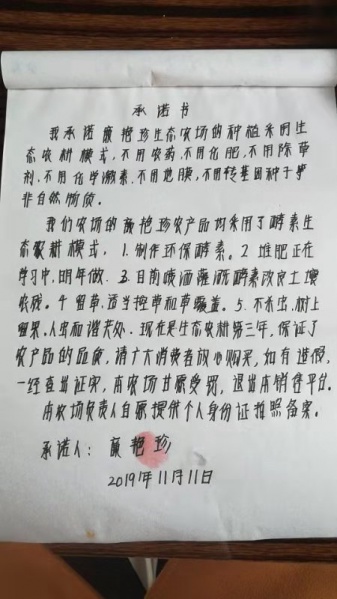 承诺书
我承诺 艳珍生态农场的种植采用生
态农耕模式,不用农药,不用化肥,不用除草
剂、不用化学激素、不用地膜,不用转基因种子等
非自然物质。
我们农场的 艳珍农产品均采用了酵素生
态农耕模式,1.制作环保酵素。2堆肥正在
学习中,明年做.3.日常喷洒灌溉酵素改良土壤
农残。4留草,适当控草和草覆盖。5.不杀虫,树上
留果,人虫和谐共处.现在是生态农耕第三年,保证了
农产品的品质,请广大消费者放心购买,如有造假,
一经查出证实,本农场甘愿受罚,退出本销售平台.
本农场负责人自愿提供个人身份证拍照备案.
承诺人: 艳珍
2019年11月11日